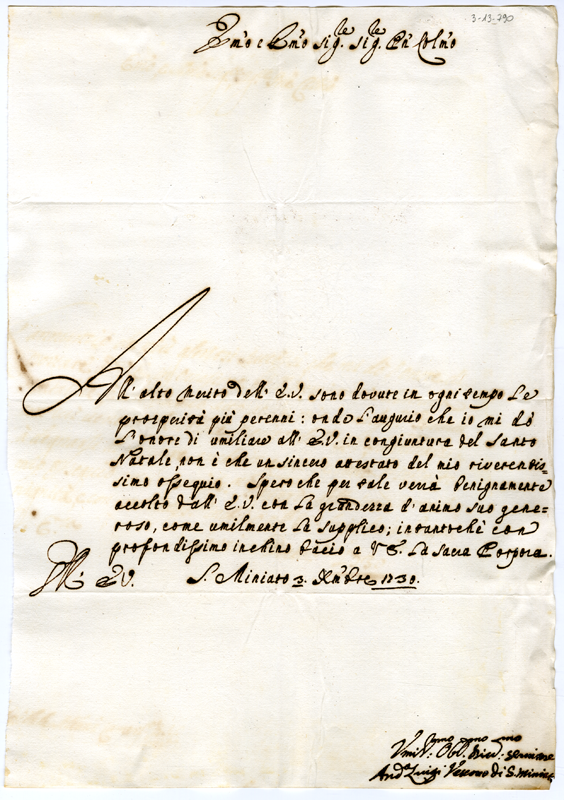 3-13-790
Em̃o e Rm̃o Sig.re Sig.re Pñ Colm̃o
All' alto merito dell' E.V. sono dovute in ogni tempo le
prosperità più perenni: onde l'augurio che io mi dò
l'onore di umiliare all' E.V. in congiuntura del Santo
Natale, non è che un sincero attestato del mio riverentis=
simo ossequio. Spero che per tale verrà benignamente
accolto dall' E.V. con la grandezza d'animo suo gene=
roso, come umilmente la supplico; intantochè con
profondissimo inchino bacio a V.E. la sacra Porpora.
Di E.V. S. Miniato 3. Xm̃bre 1730.
Umil.mo Obl.mo
And.a Luigi Vescovo di S. Miniato